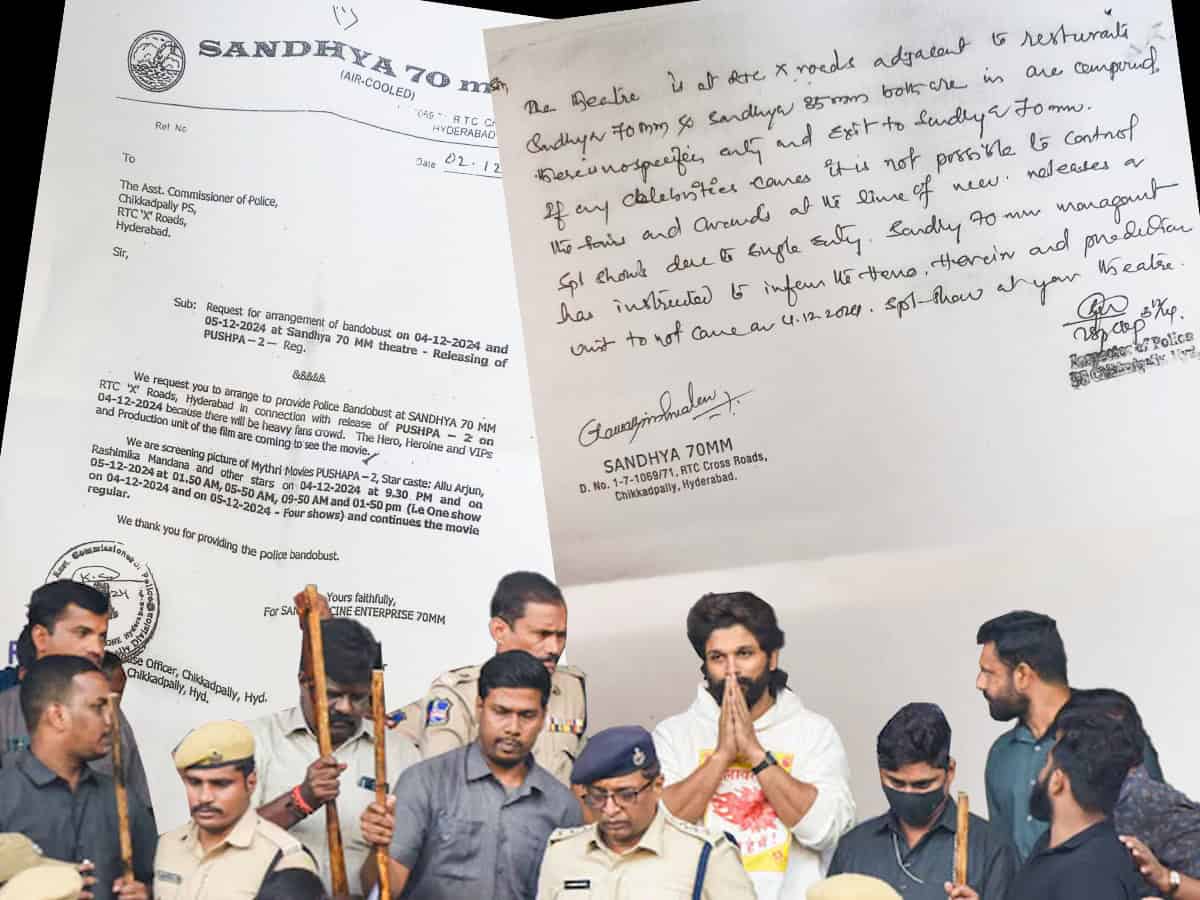 SANDHYA 70
(AIR-COOLED)
RTC
HYDERABAD
Ref. No
Date 02.12
To
The Asst. Commissioner of Police,
Chikkadpally PS,
RTC 'X' Roads,
Hyderabad.
Sir,
Sub: Request for arrangement of bandobust on 04-12-2024 and
05-12-2024 at Sandhya 70 MM theatre - Releasing of
PUSHPA – 2 – Reg.
&&&&&
We request you to arrange to provide Police Bandobust at SANDHYA 70 MM
RTC 'X' Roads, Hyderabad in connection with release of PUSHPA – 2 on
04-12-2024 because there will be heavy fans crowd. The Hero, Heroine and VIPs
and Production unit of the film are coming to see the movie.
We are screening picture of Mythri Movies PUSHAPA – 2, Star caste: Allu Arjun,
Rashimika Mandana and other stars on 04-12-2024 at 9.30 PM and on
05-12-2024 at 01.50 AM, 05-50 AM, 09-50 AM and 01-50 pm (Le One show
on 04-12-2024 and on 05-12-2024 - Four shows) and continues the movie
regular.
We thank you for providing the police bandobust.
Yours faithfully,
For CINE ENTERPRISE 70MM
Asst. Commissioner of Police
Officer, Chikkadpally, Hyd.
Chikkadpally, Hyd.
The theatre is at RTC X roads adjacent to
Sandhya 70MM Sandhya 35mm both are in
entry and Exit to Sandhya 70 mm.
If any celebrities comes it is not possible to control
the fans and crowds at the time of new releases or
Spl shows due to single entry. Sandhy 70 mm
has instructed to inform the Hero, and
unit to not come on 4.12.2024. Spl-show at your theatre.
Inspector of Police
SANDHYA 70MM
D. No. 1-7-1069/71, RTC Cross Roads,
Chikkadpally, Hyderabad.